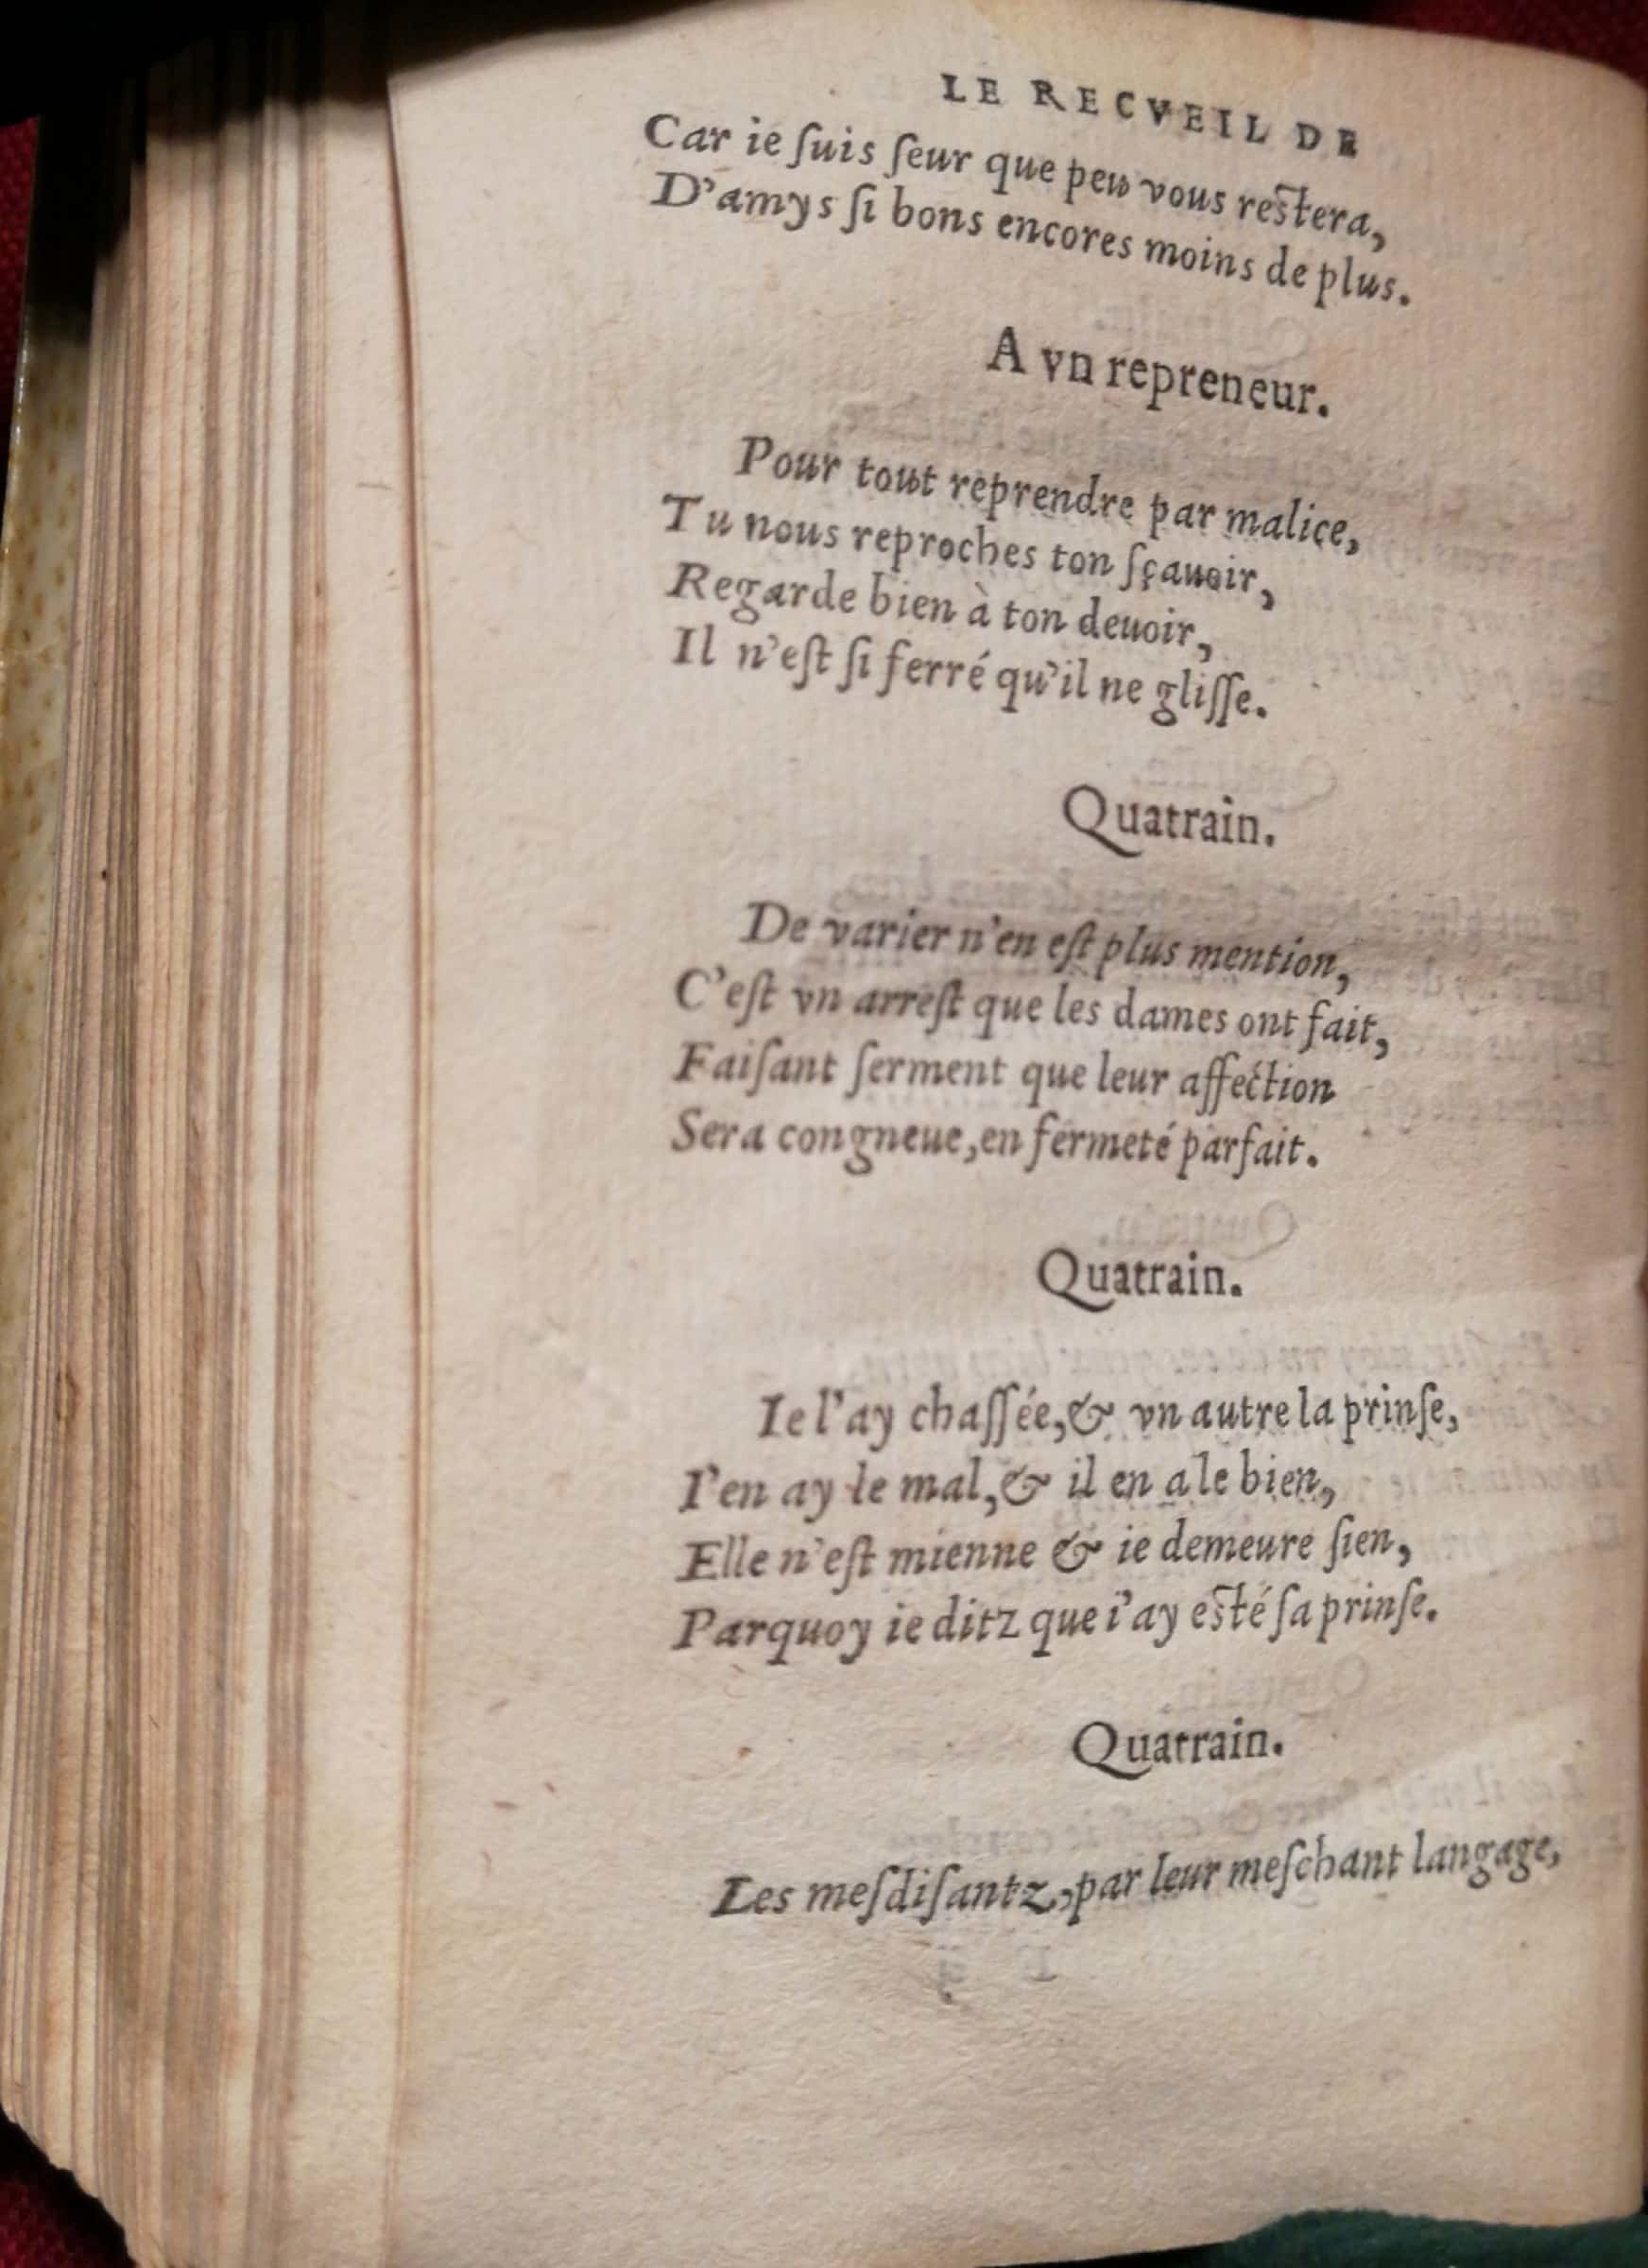 LE RECVEIL DE
Car ie ſuis ſeur que peu vous reſtera,
D'amys ſi bons encores moins de plus.
A vn repreneur.
Pour tout reprendre par malice,
Tu nous reproches ton ſçauoir,
Regarde bien à ton deuoir,
Il n'eſt ſi ferré qu'il ne gliſſe.
Quatrain.
De varier n'en eſt plus mention,
C'eſt vn arreſt que les dames ont fait,
Faiſant ſerment que leur affection
Sera congneue, en fermeté parfait.
Quatrain.
Ie l'ay chaſſée, & vn autre la prinſe,
I'en ay le mal, & il en a le bien,
Elle n'eſt mienne & ie demeure ſien,
Parquoy ie ditz que i'ay eſté ſa prinſe.
Quatrain.
Les meſdiſantz, par leur meſchant langage,